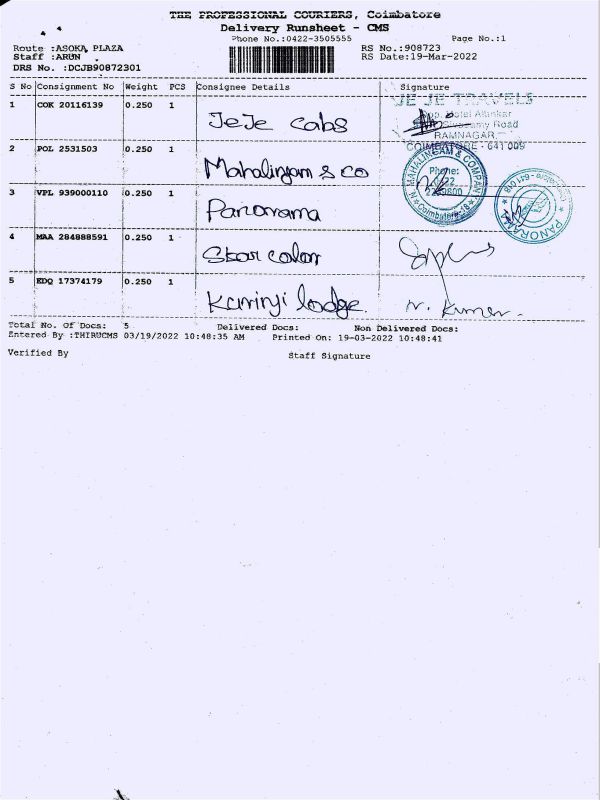 THE PROFESSIONAL COURIERS, Coimbatore
Delivery Runsheet - CMS
Phone No.:0422-3505555 Page No.:1
Route :ASOKA PLAZA RS No.:908723
Staff :ARUN RS Date:19-Mar-2022
DRS No. :DCJB90872301
S No Consignment No Weight PCS Consignee Details Signature
1 COK 20116139 0.250 1 JeJe Cabs
JE JE TRAVELS
Road
RAMNAGAR
COIMBATORE - 641 009
2 POL 2531503 0.250 1 Mahalingam & co
N. MAHALINGAM & COMPANY
Phone:
Coimbatore-18
3 VPL 939000110 0.250 1 Panorama
PANORAMA
4 MAA 284888591 0.250 1 Star color
5 EDQ 17374179 0.250 1 Kurinji lodge N. Kumar
Total No. Of Docs: 5 Delivered Docs: Non Delivered Docs:
Entered By :THIRUCMS 03/19/2022 10:48:35 AM Printed On: 19-03-2022 10:48:41
Verified By Staff Signature